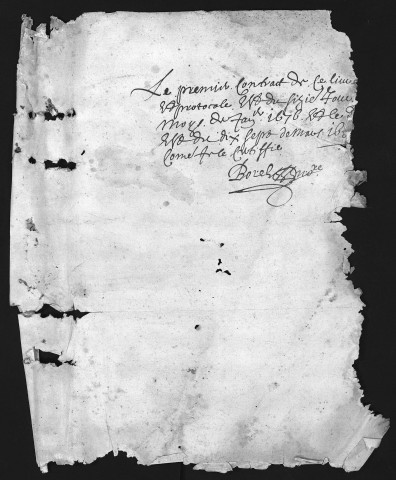 Le premier Contract de ce livre
et protocole est du sizie Jour
moys de Janr 1676 et le d
est du dix sept de mars 16
Come Je le Certiffie
Borel no.re